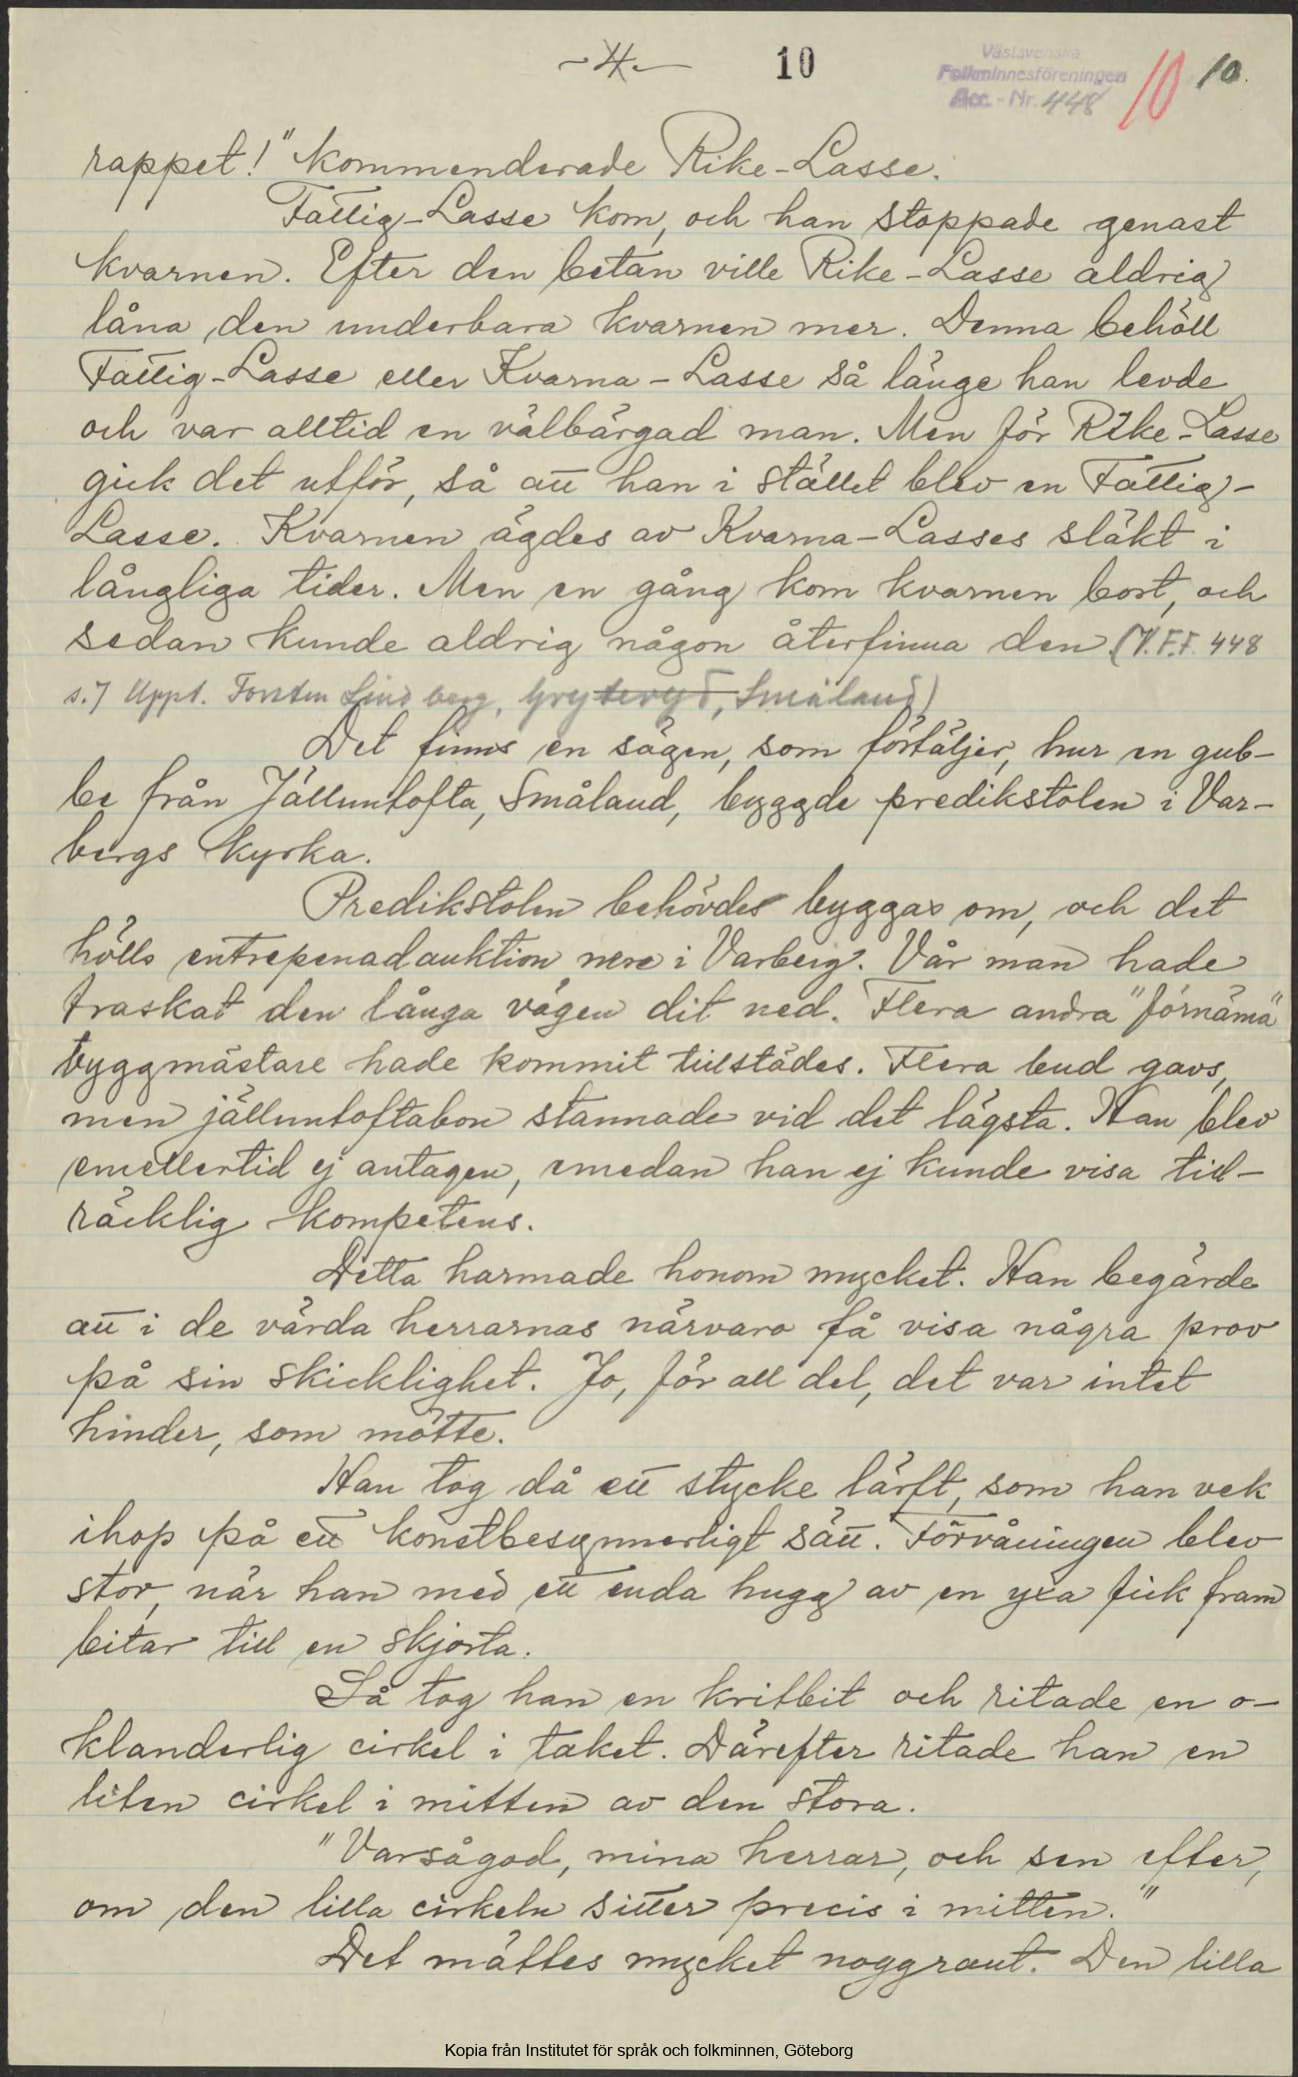 -4-
10
Västsvenska
Folkminnesföreningen
Acc. - Nr. 448
10 10.
rappet!" kommenderade Rike-Lasse.
Fattig-Lasse kom, och han stoppade genast
kvarnen. Efter den betan ville Rike-Lasse aldrig
låna den underbara kvarnen mer. Denna behöll
Fattig-Lasse eller Kvarna-Lasse så länge han levde
och var alltid en välbärgad man. Men för Rike-Lasse
gick det utför, så att han i stället blev en Fattig-
Lasse. Kvarnen ägdes av Kvarna-Lasses släkt i
långliga tider. Men en gång kom kvarnen bort, och
sedan kunde aldrig någon återfinna den. (V.F.F. 448
s.7 Uppt. Torsten Lindberg, Gryteryd, Småland)
Det finns en sägen, som förtäljer, hur en gub-
be från Jälluntofta, Småland, byggde predikstolen i Var-
bergs kyrka.
Predikstolen behövdes byggas om, och det
hölls entrepenadauktion nere i Varberg. Vår man hade
traskat den långa vägen dit ned. Flera andra "förnäma"
byggmästare hade kommit tillstädes. Flera bud gavs,
men jälluntoftabon stannade vid det lägsta. Han blev
emellertid ej antagen, emedan han ej kunde visa till-
räcklig kompetens.
Detta harmade honom mycket. Han begärde
att i de värda herrarnas närvaro få visa några prov
på sin skicklighet. Jo, för all del, det var intet
hinder, som mötte.
Han tog då ett stycke lärft, som han vek
ihop på ett konstbesynnerligt sätt. Förvåningen blev
stor, när han med ett enda hugg av en yxa fick fram
bitar till en skjorta.
Så tog han en kritbit och ritade en o-
klanderlig cirkel i taket. Därefter ritade han en
liten cirkel i mitten av den stora.
"Varsågod, mina herrar, och sen efter,
om den lilla cirkeln sitter precis i mitten."
Det mättes mycket noggrant. Den lilla
Kopia från Institutet för språk och folkminnen, Göteborg